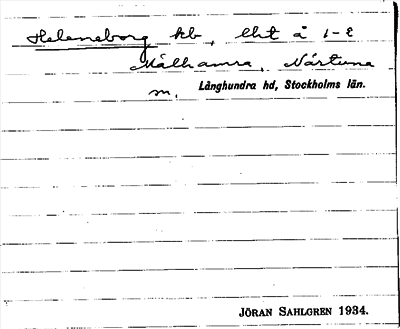 Heleneborg hb, lht å 1-2
Målhamra, Närtuna
sn, Långhundra hd, Stockholms län.
JÖRAN SAHLGREN 1934.